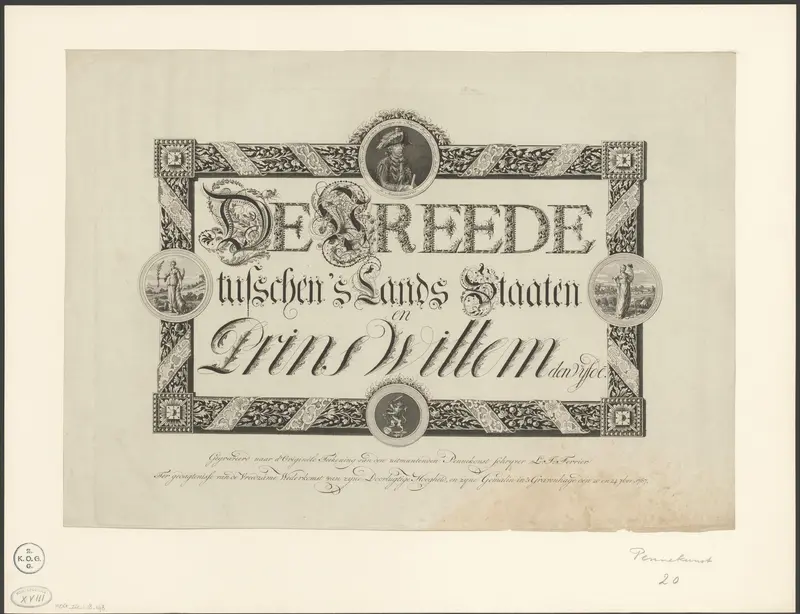 DE VREEDE
tusschen 's Lands Staaten
en
Prins Willem den Vyfde.
Gegraveerd naar d'Origineele Tekening van den uitmuntenden Pennekonst schryver L. F. Ferrier
Ter geagtenisse van de Vreedzame Wederkomst van zijne Doorlugtige Hoogheid, en zijne Gemalin in 's Gravenhage den 20 en 24 7ber, 1787.
Pennekunst
20
S.
K.O.G.
O.
XVIII